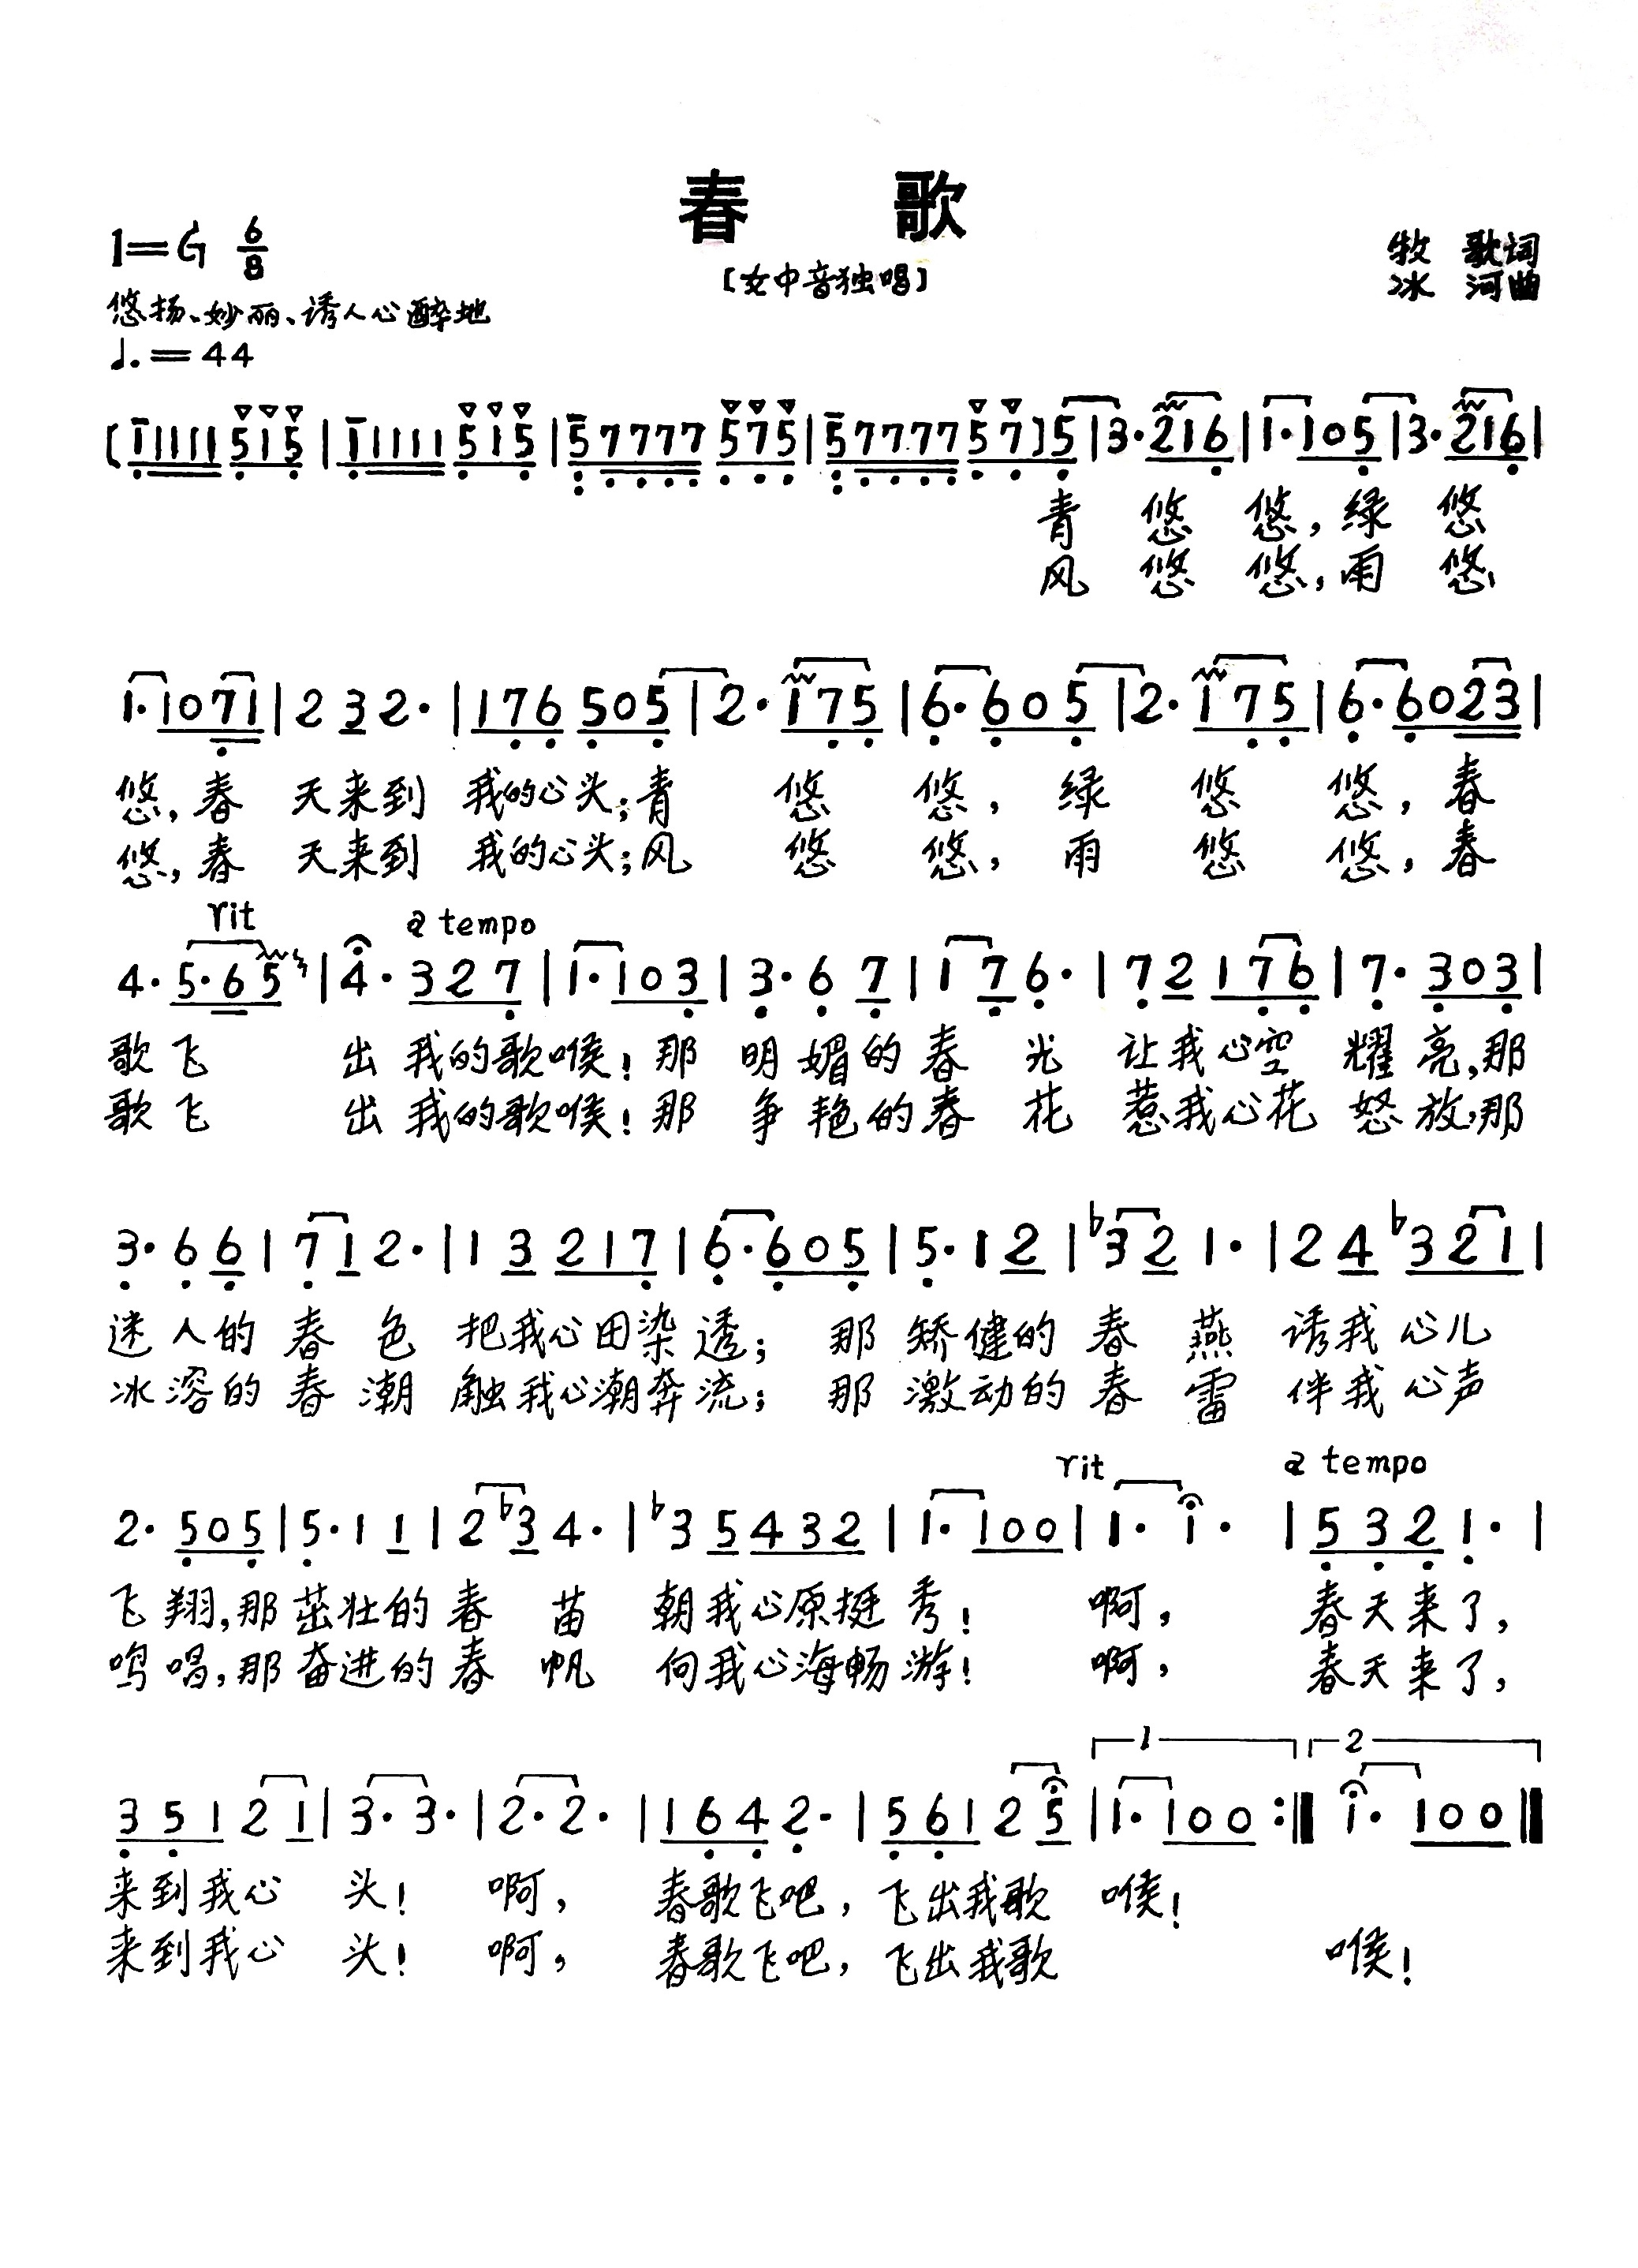 春 歌
1=G 6/8
〔女中音独唱〕
牧 歌词
冰 河曲
悠扬、妙丽、诱人心醉地
♩.=44
〔1 1111 515|1 1111 515|5 7777 575|5 7777 57〕5|3·216|1·105|3·216|
青 悠 悠，绿 悠
风 悠 悠，雨 悠
1·1071|2 3 2·|176 505|2·175|6·605|2·175|6·6023|
悠，春 天来到 我的心头；青 悠 悠，绿 悠 悠，春
悠，春 天来到 我的心头；风 悠 悠，雨 悠 悠，春
rit a tempo
4·5·65|4·327|1·103|3·6 7|1 7 6·|7 2 1 7 6|7·303|
歌飞 出 我的歌喉！那 明媚的春 光 让我心空 耀亮，那
歌飞 出 我的歌喉！那 争艳的春 花 惹我心花 怒放，那
3·6 6|7 1 2·|1 3 2 1 7|6·605|5·1 2|♭3 2 1·|2 4 ♭3 2 1|
迷人的 春 色 把我心田染透； 那 矫健的 春 燕 诱我 心儿
冰溶的 春 潮 触我心潮奔流； 那 激动的 春 雷 伴我 心声
rit a tempo
2·505|5·1 1|2 ♭3 4·|♭3 5 4 3 2|1·100|1· 1·|5 3 2 1·|
飞翔，那茁壮的春 苗 朝我心原挺秀！ 啊， 春天来了，
鸣唱，那奋进的春 帆 向我心海畅游！ 啊， 春天来了，
1 2
3 5 1 2 1|3·3·|2·2·|1 6 4 2·|5 6 1 2 5|1·100:‖1·100‖
来到我心 头！ 啊， 春歌飞吧，飞出我歌 喉！
来到我心 头！ 啊， 春歌飞吧，飞出我歌 喉！